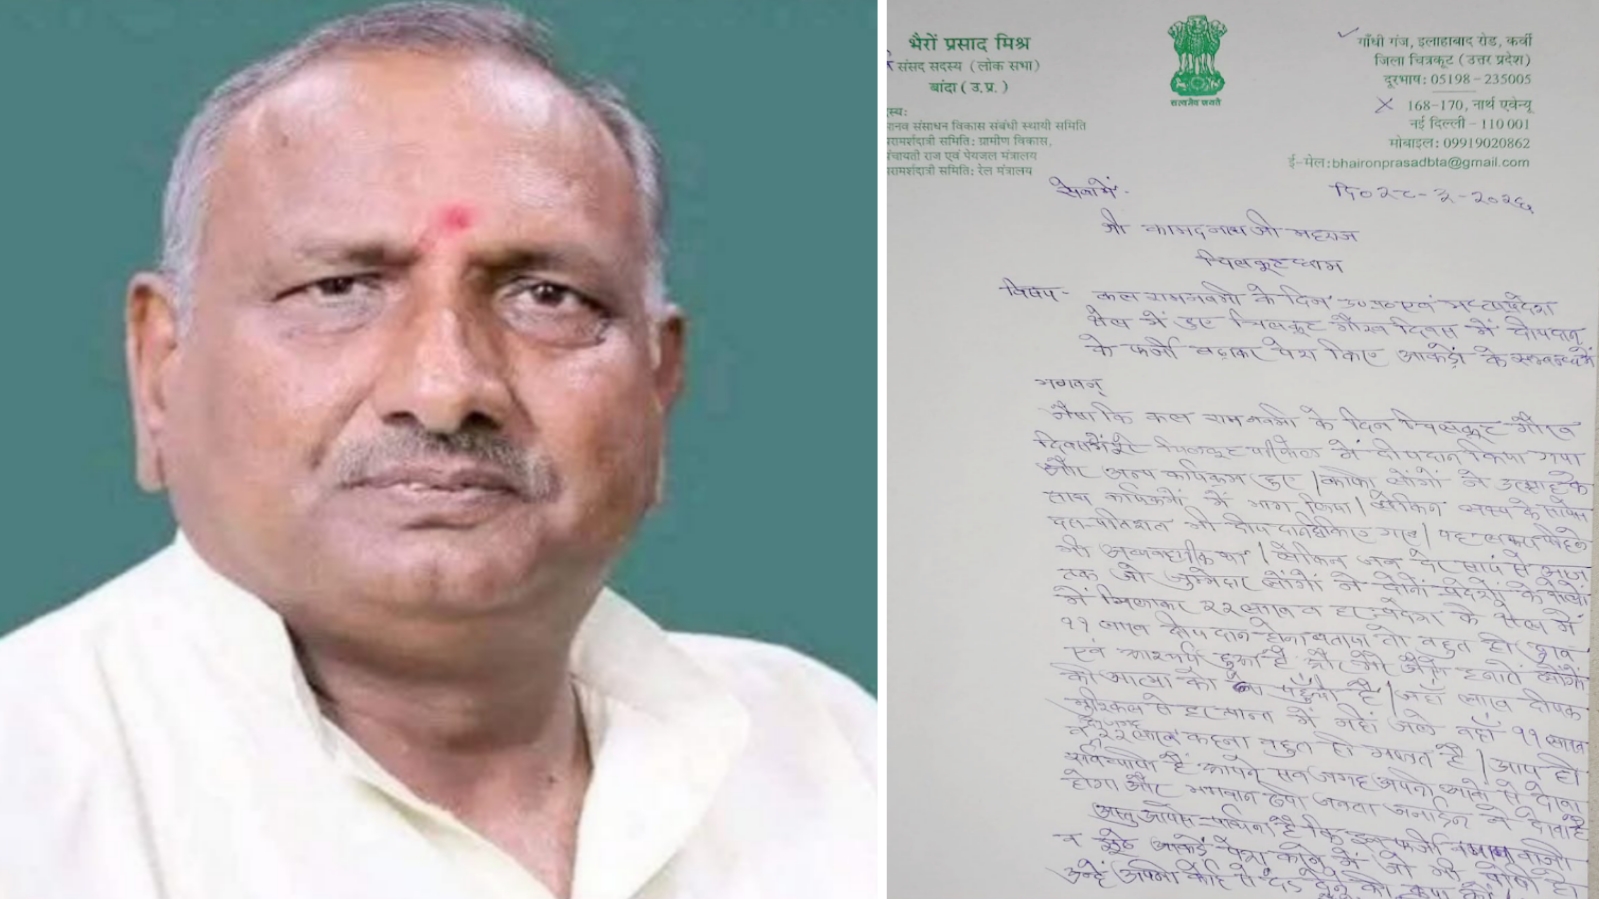 भैरों प्रसाद मिश्र
संसद सदस्य (लोक सभा)
बांदा (उ.प्र.)
मानव संसाधन विकास संबंधी स्थायी समिति
परामर्शदात्री समिति: ग्रामीण विकास,
पंचायती राज एवं पेयजल मंत्रालय
परामर्शदात्री समिति: रेल मंत्रालय
सत्यमेव जयते
गाँधी गंज, इलाहाबाद रोड, कर्वी
जिला चित्रकूट (उत्तर प्रदेश)
दूरभाष: 05198-235005
168-170, नार्थ एवेन्यू
नई दिल्ली-110 001
मोबाइल: 09919020862
ई-मेल:bhaironprasadbta@gmail.com
सेवा में
दि० २८-३-२०२६
श्री कामदनाथ जी महराज
चित्रकूट धाम
विषय- कल रामनवमी के दिन उ०प्र० एवं मध्यप्रदेश
क्षेत्र में हुए चित्रकूट गौरव दिवस में दीपदान
के फर्जी बढ़ाकर पेश किए आकड़ों के सम्बन्ध में
भगवन्
जैसा कि कल रामनवमी के दिन चित्रकूट गौरव
चित्रकूट में दीपदान किया गया
और अन्य कार्यक्रम हुए। काफी लोगों ने उत्साह के
साथ कार्यक्रमों में भाग लिया। लेकिन
लेकिन जब देर सायं से आज
तक जो जुम्मेदार लोगों ने दोनों प्रदेशों के क्षेत्रों
में मिलाकर २२ लाख व उ०प्रदेश के क्षेत्र में
११ लाख दीपदान होना बताया तो बहुत ही दुख
एवं आश्चर्य हुआ है और मेरे जैसे हजारों लोगों
की आत्मा को पहुँची है। जहाँ लाख दीपक
में नहीं जले वहाँ ११ लाख
व २२ लाख कहना बहुत ही गलत है। आप ही
आपने सब जगह अपनी आंखों से देखा
होगा और भगवान रूपी जनता जनार्दन ने देखा है
आपसे प्रार्थना है कि इस फर्जी
व झूठे आकड़े पेश करने में जो भी दोषी हो
उन्हें अपनी ओर से दंड देने की कृपा करें।